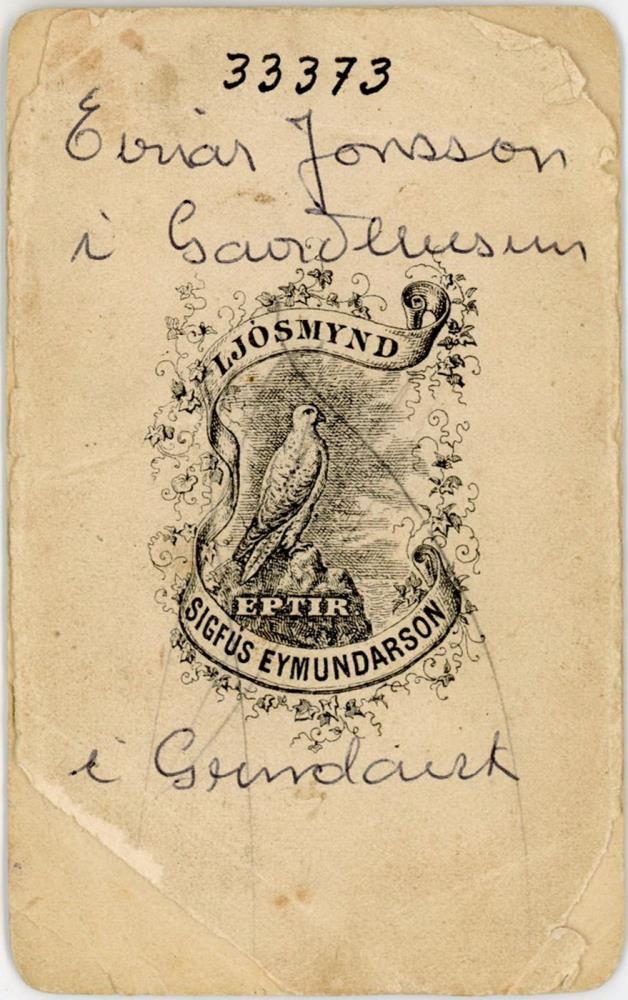 33373
Einar Jonsson
i Garðhusum
LJÓSMYND
EPTIR
SIGFÚS EYMUNDARSON
i Grindavik